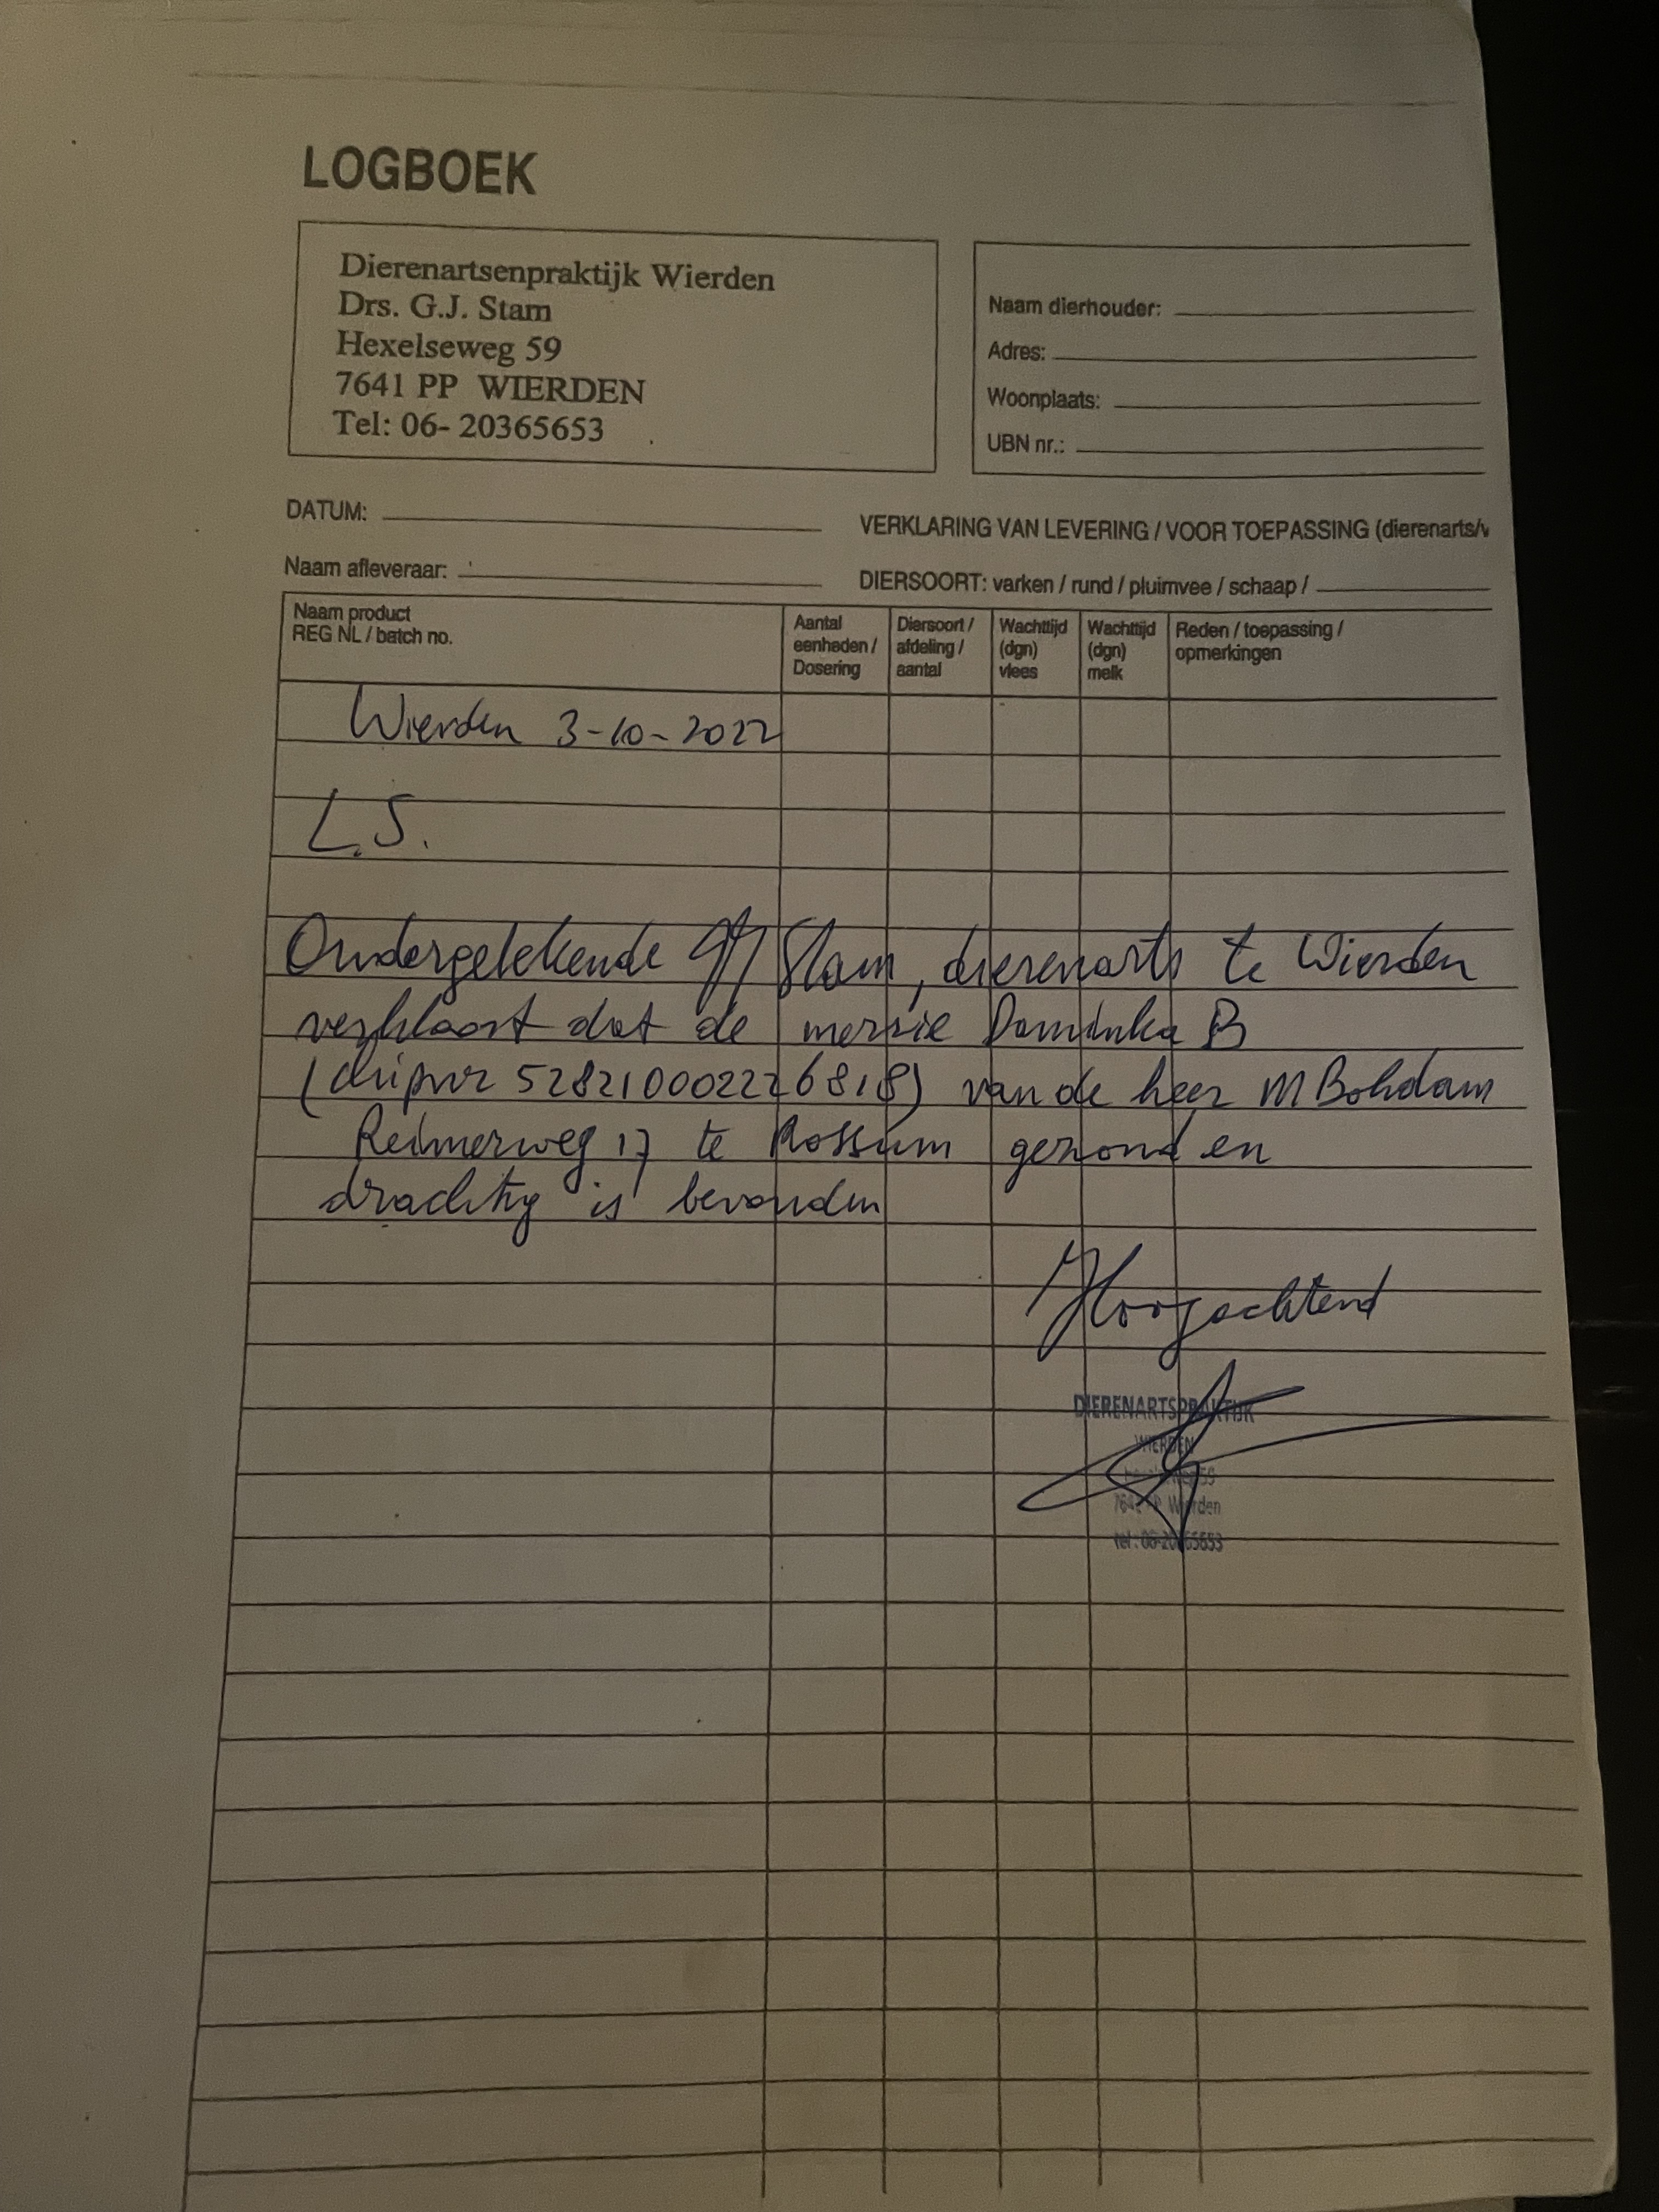 LOGBOEK
Dierenartsenpraktijk Wierden
Drs. G.J. Stam
Hexelseweg 59
7641 PP WIERDEN
Tel: 06- 20365653
Naam dierhouder:
Adres:
Woonplaats:
UBN nr.:
DATUM:
VERKLARING VAN LEVERING / VOOR TOEPASSING (dierenarts/v
Naam afleveraar:
DIERSOORT: varken / rund / pluimvee / schaap /
Naam product
REG NL / batch no.
Aantal
eenheden /
Dosering
Diersoort /
afdeling /
aantal
Wachttijd
(dgn)
vlees
Wachttijd
(dgn)
melk
Reden / toepassing /
opmerkingen
Wierden 3-10-2022
L.S.
Ondergetekende GJ Stam, dierenarts te Wierden
verklaart dat de merrie Dominka B
(chipnr 528210002226818) van de heer M Bohdam
Reimerweg 17 te Rossum gezond en
drachtig is bevonden
Hoogachtend
DIERENARTSPRAKTIJK
WIERDEN
59
7641 PP Wierden
tel: 06-20365653